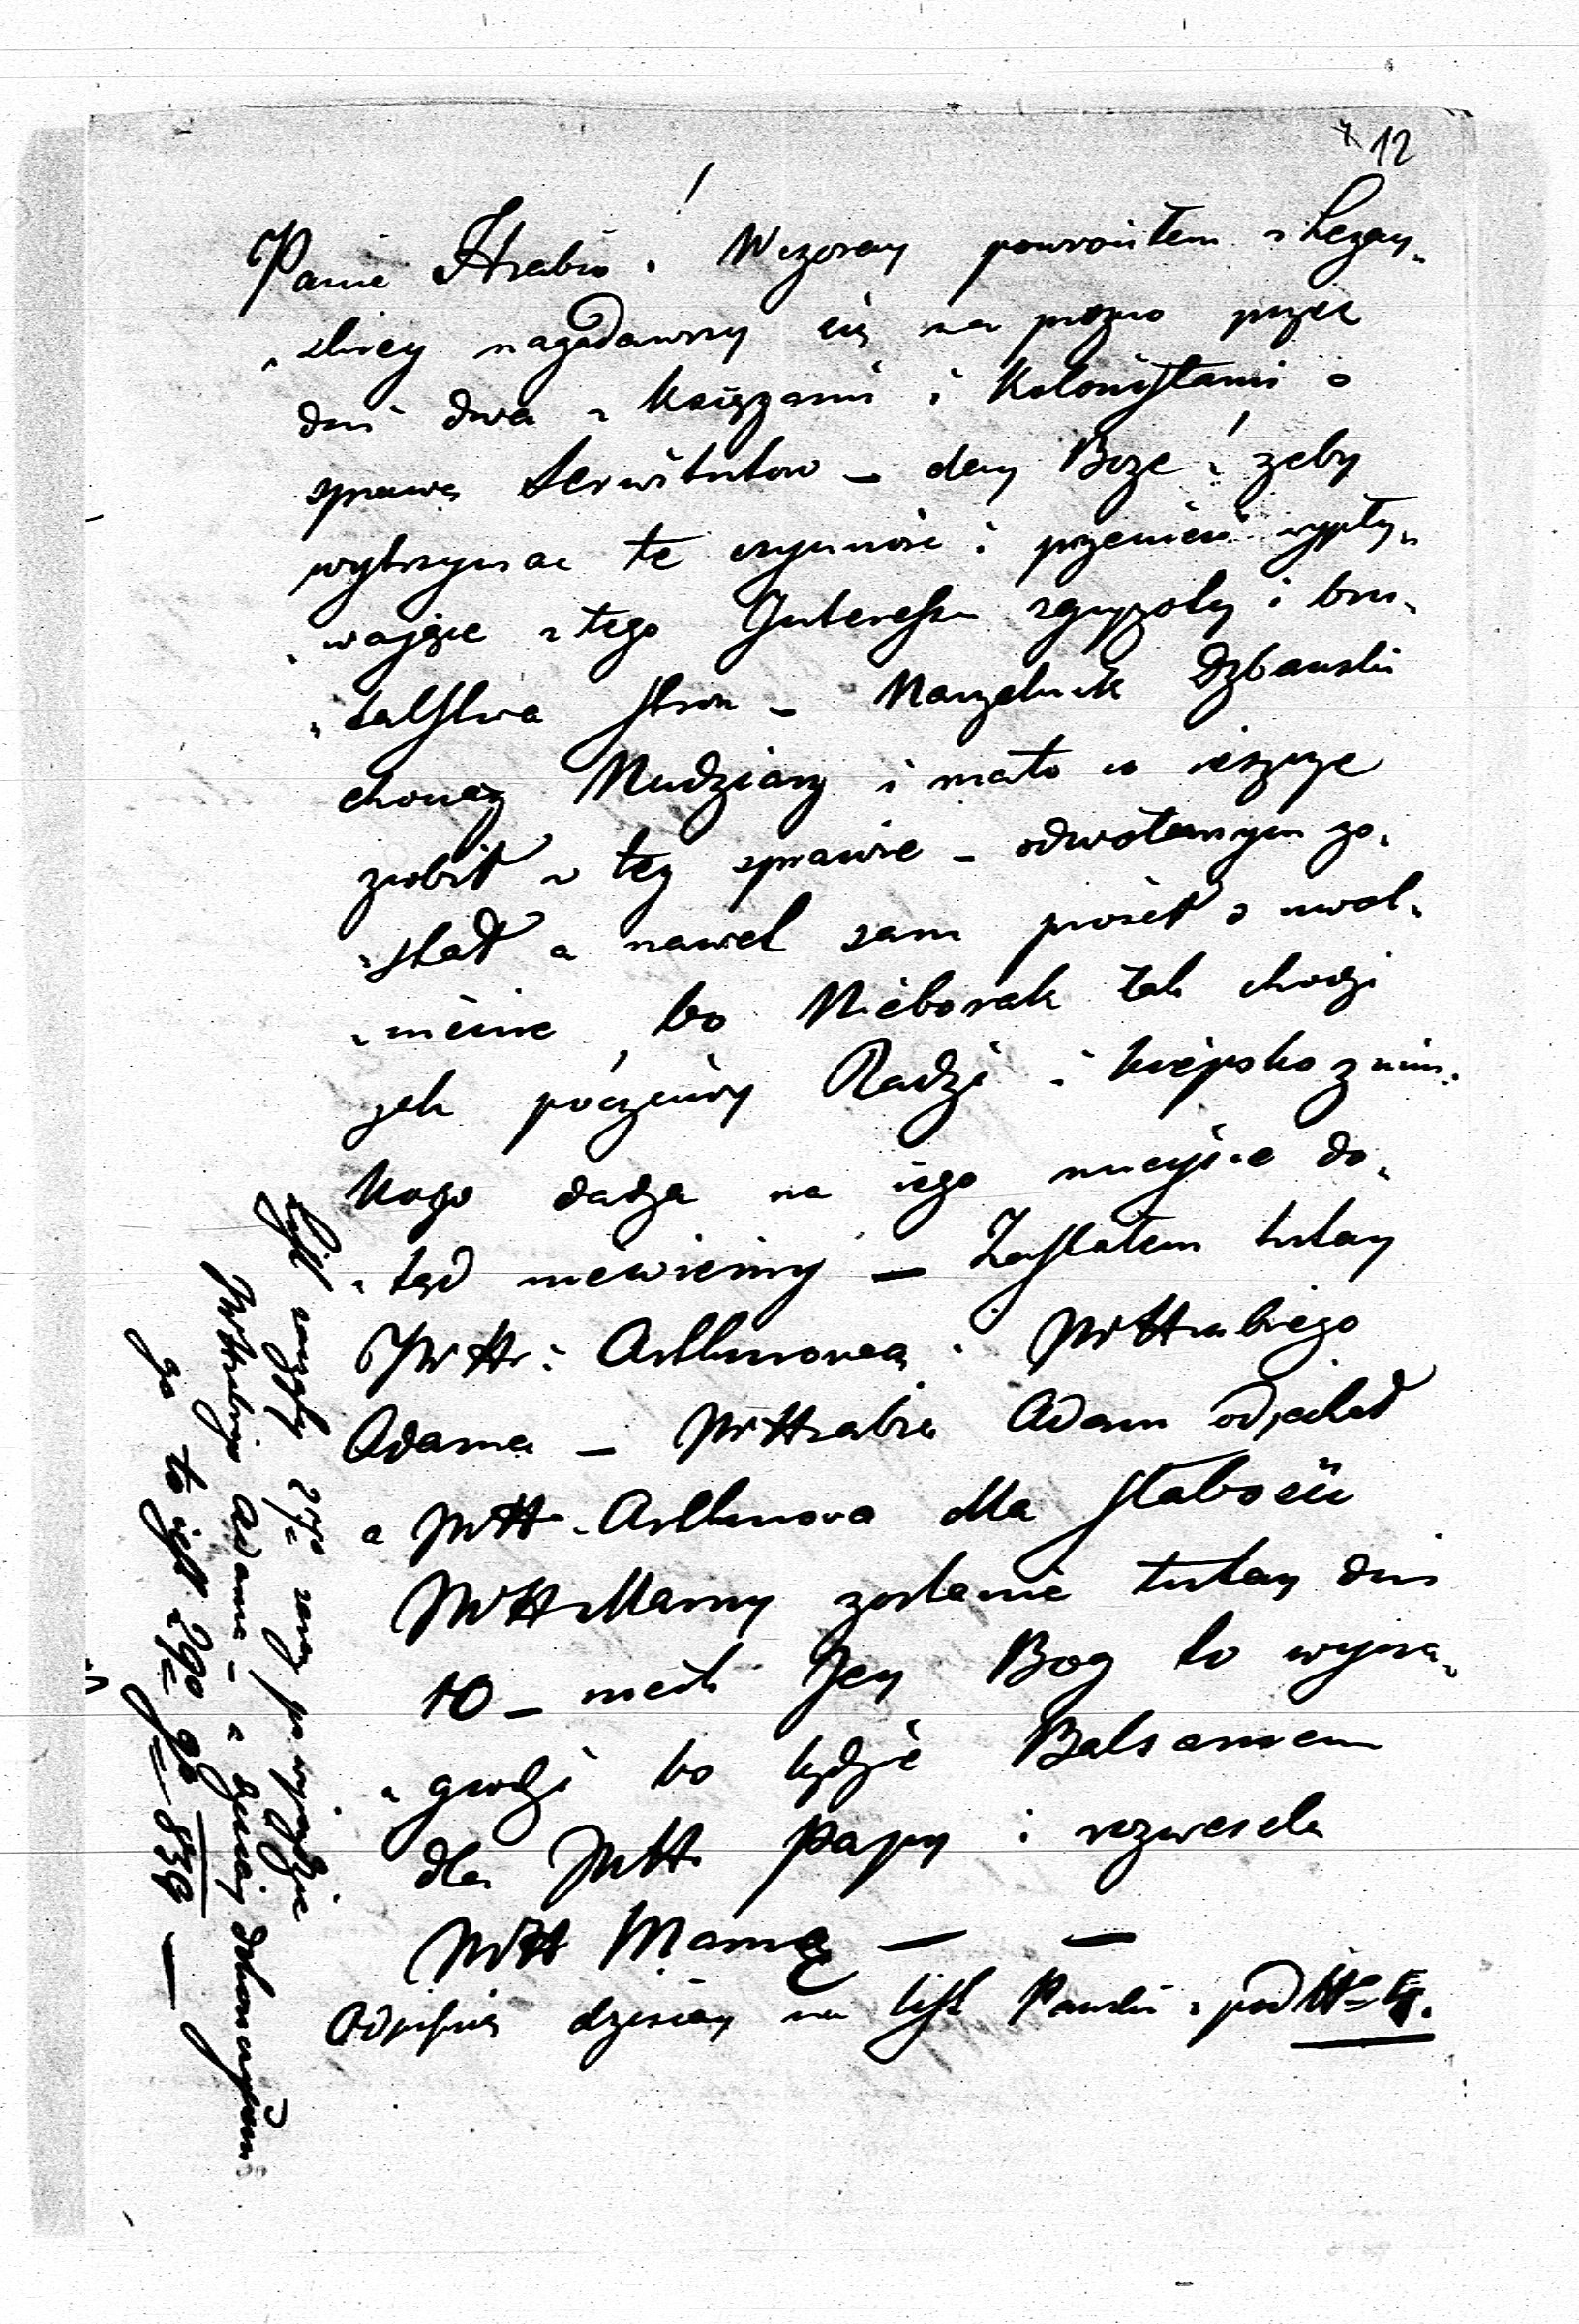 12
Panie Hrabio! Wczoray powróciłem z Leżay„
„skiey nagadawszy się na prozno przez
dni dwa z Księżami i Kolonistami o
sprawę Serwitutow – day Boze! zeby
wytrzymac te czynnośc i przenieść wypły„
„wające z tego Interessu zgryzoty i bru„
„talstwa stron – Naczelnik Dzbanski
choruiąc Nudziarz i mało co ieszcze
zrobił w tey sprawie – odwołanym zo„
„stał a nawet sam prosił o uwol„
„nienie, bo Nieborak tak chodzi
jak poczciwy Radzi i kiepsko z nim.
kogo dadzą na iego mieysce do„
„tąd niewiemy – Zastałem tutay
JWHr: Arthurową i JWHrabiego
Adama – JWHrabia Adam odjechał
a JWH. Arthurowa dla słabości
JWH Mamy zostanie tutay dni
10 – niech Jey Bog to wyna„
„grodzi bo będzie Balsamem
dla JWH. Papy i rozwesela
JWH Mamę – –
Odpisuię dzisiay na list Pański z pod N° 4.
List zaczęty 27° zaraz po wyjeździe
JWHrabiego Adama – a dzisiay dokonczam
go to jest 29° 9° 839 –